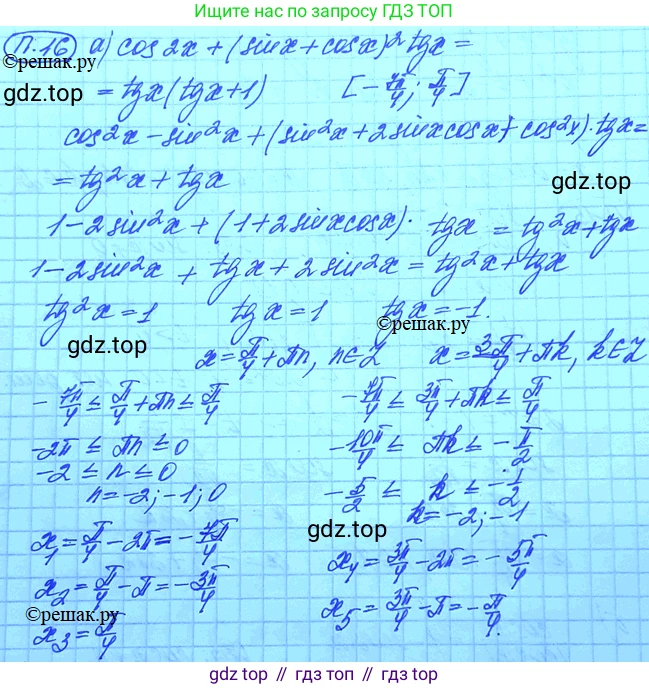 Нажмите на крестик, чтобы
искать по запросу ГДЗ ТОП
П.16 а) cos 2x + (sinx + cosx)² tgx =
©решак.ру
gdz.top
= tgx (tgx+1) [-7π/4; π/4]
cos²x - sin²x + (sin²x + 2sinxcosx + cos²x)·tgx =
= tg²x + tgx
gdz.top
1 - 2sin²x + (1 + 2sinxcosx)· tgx = tg²x + tgx
1 - 2sin²x + tgx + 2sin²x = tg²x + tgx
tg²x = 1 tgx = 1 tgx = -1.
©решак.ру
gdz.top
x = π/4 + πn, n∈Z x = 3π/4 + πk, k∈Z
-7π/4 ≤ π/4 + πn ≤ π/4 -7π/4 ≤ 3π/4 + πk ≤ π/4
-2π ≤ πn ≤ 0 -10π/4 ≤ πk ≤ -π/2
-2 ≤ n ≤ 0 -5/2 ≤ k ≤ -1/2
n = -2; -1; 0 k = -2; -1
gdz.top
x₁ = π/4 - 2π = -7π/4 x₄ = 3π/4 - 2π = -5π/4
x₂ = π/4 - π = -3π/4 x₅ = 3π/4 - π = -π/4.
©решак.ру
x₃ = π/4
gdz.top
gdz.top // гдз.топ // gdz.top